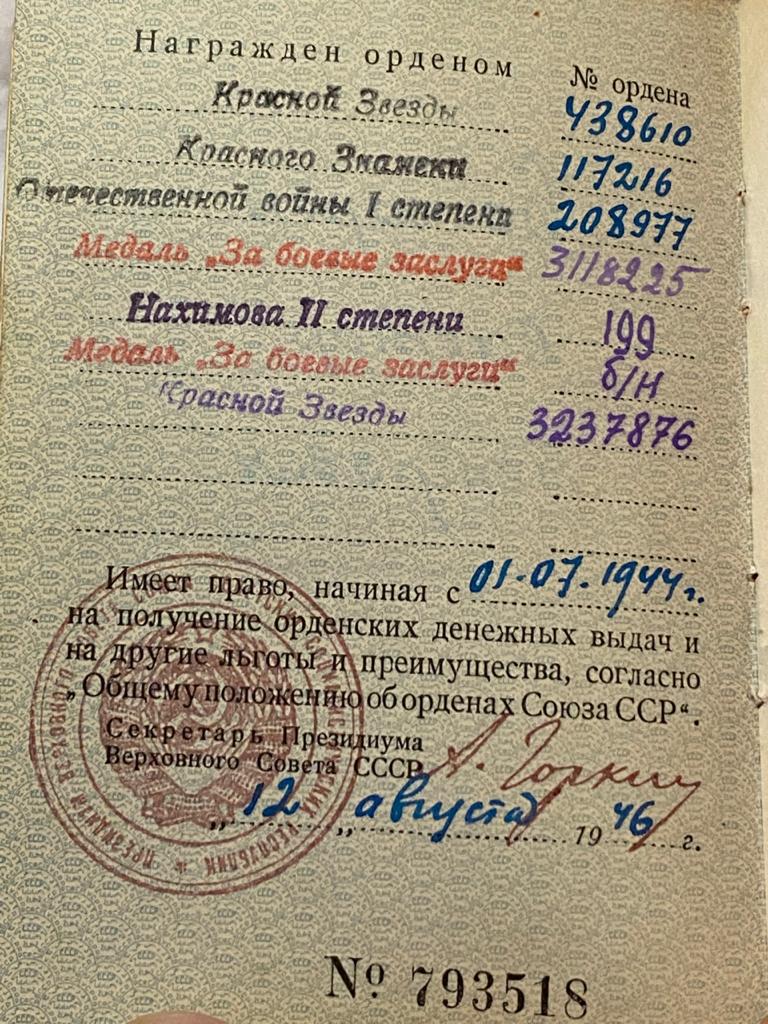 Награжден орденом № ордена
Красной Звезды 438610
Красного Знамени 117216
Отечественной войны I степени 208977
Медаль „За боевые заслуги“ 3118225
Нахимова II степени 199
Медаль „За боевые заслуги“ б/н
Красной Звезды 3237876
Имеет право, начиная с 01.07.1944г.
на получение орденских денежных выдач и
на другие льготы и преимущества, согласно
„Общему положению об орденах Союза ССР“.
Секретарь Президиума
Верховного Совета СССР А. Горкин
„ 12 „ августа 19 46 г.
№ 793518